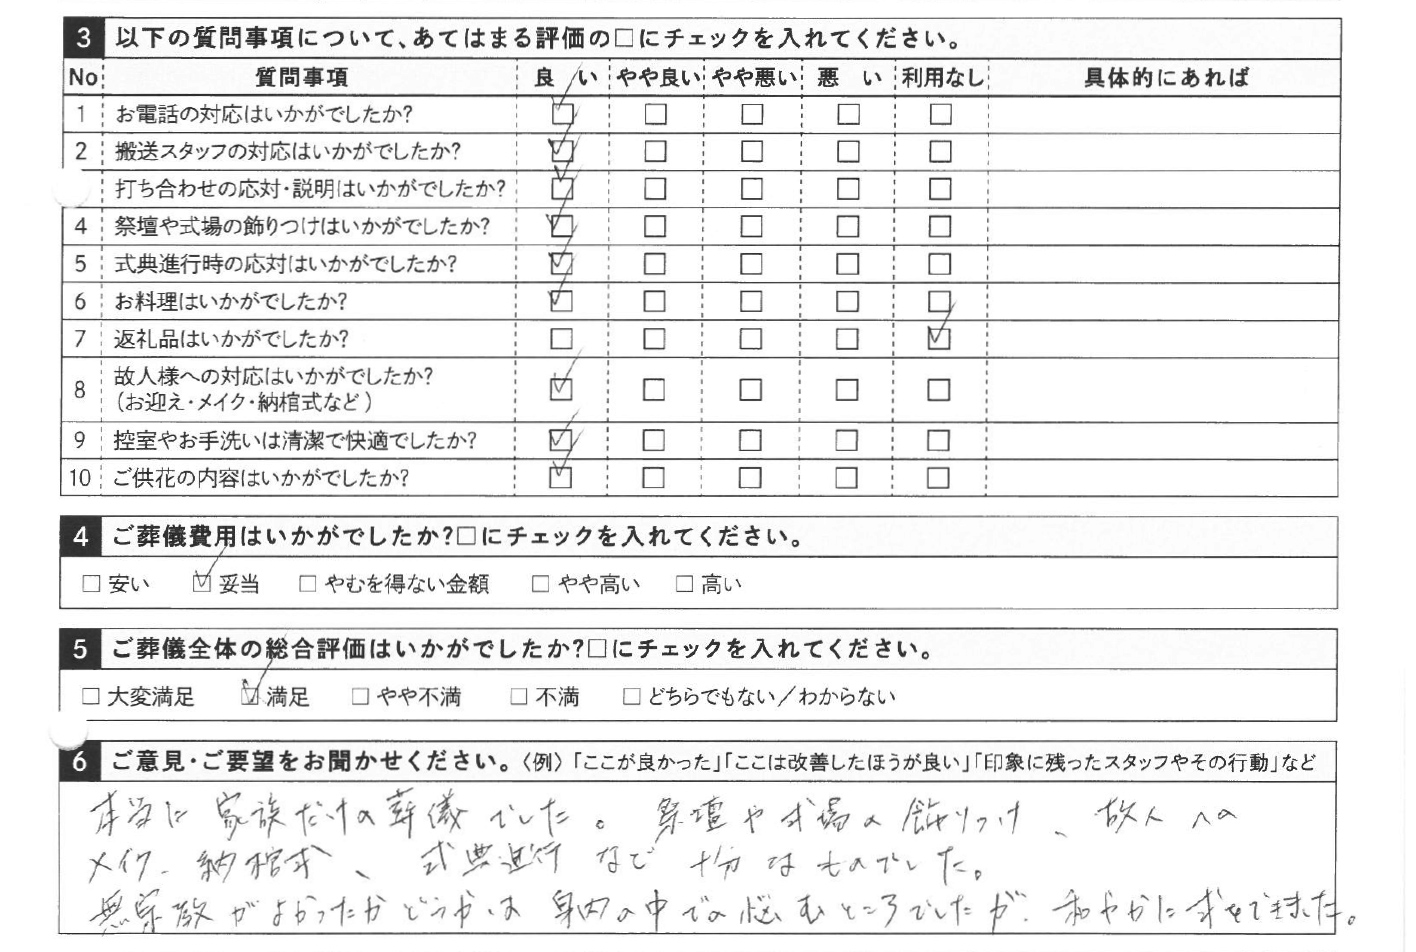 3 以下の質問事項について、あてはまる評価の□にチェックを入れてください。
No 質問事項 良い やや良い やや悪い 悪い 利用なし 具体的にあれば
1 お電話の対応はいかがでしたか? ☑ □ □ □ □
2 搬送スタッフの対応はいかがでしたか? ☑ □ □ □ □
打ち合わせの応対・説明はいかがでしたか? ☑ □ □ □ □
4 祭壇や式場の飾りつけはいかがでしたか? ☑ □ □ □ □
5 式典進行時の応対はいかがでしたか? ☑ □ □ □ □
6 お料理はいかがでしたか? ☑ □ □ □ □
7 返礼品はいかがでしたか? □ □ □ □ ☑
8 故人様への対応はいかがでしたか? ☑ □ □ □ □
(お迎え・メイク・納棺式など)
9 控室やお手洗いは清潔で快適でしたか? ☑ □ □ □ □
10 ご供花の内容はいかがでしたか? ☑ □ □ □ □
4 ご葬儀費用はいかがでしたか?□にチェックを入れてください。
□ 安い ☑ 妥当 □ やむを得ない金額 □ やや高い □ 高い
5 ご葬儀全体の総合評価はいかがでしたか?□にチェックを入れてください。
□ 大変満足 ☑ 満足 □ やや不満 □ 不満 □ どちらでもない/わからない
6 ご意見・ご要望をお聞かせください。〈例〉「ここが良かった」「ここは改善したほうが良い」「印象に残ったスタッフやその行動」など
本当に家族だけの葬儀でした。祭壇や式場の飾りつけ、故人への
メイク、納棺式、式典進行など十分なものでした。
無宗教がよかったかどうかは身内の中での悩むところでしたが、和やかに式をできました。